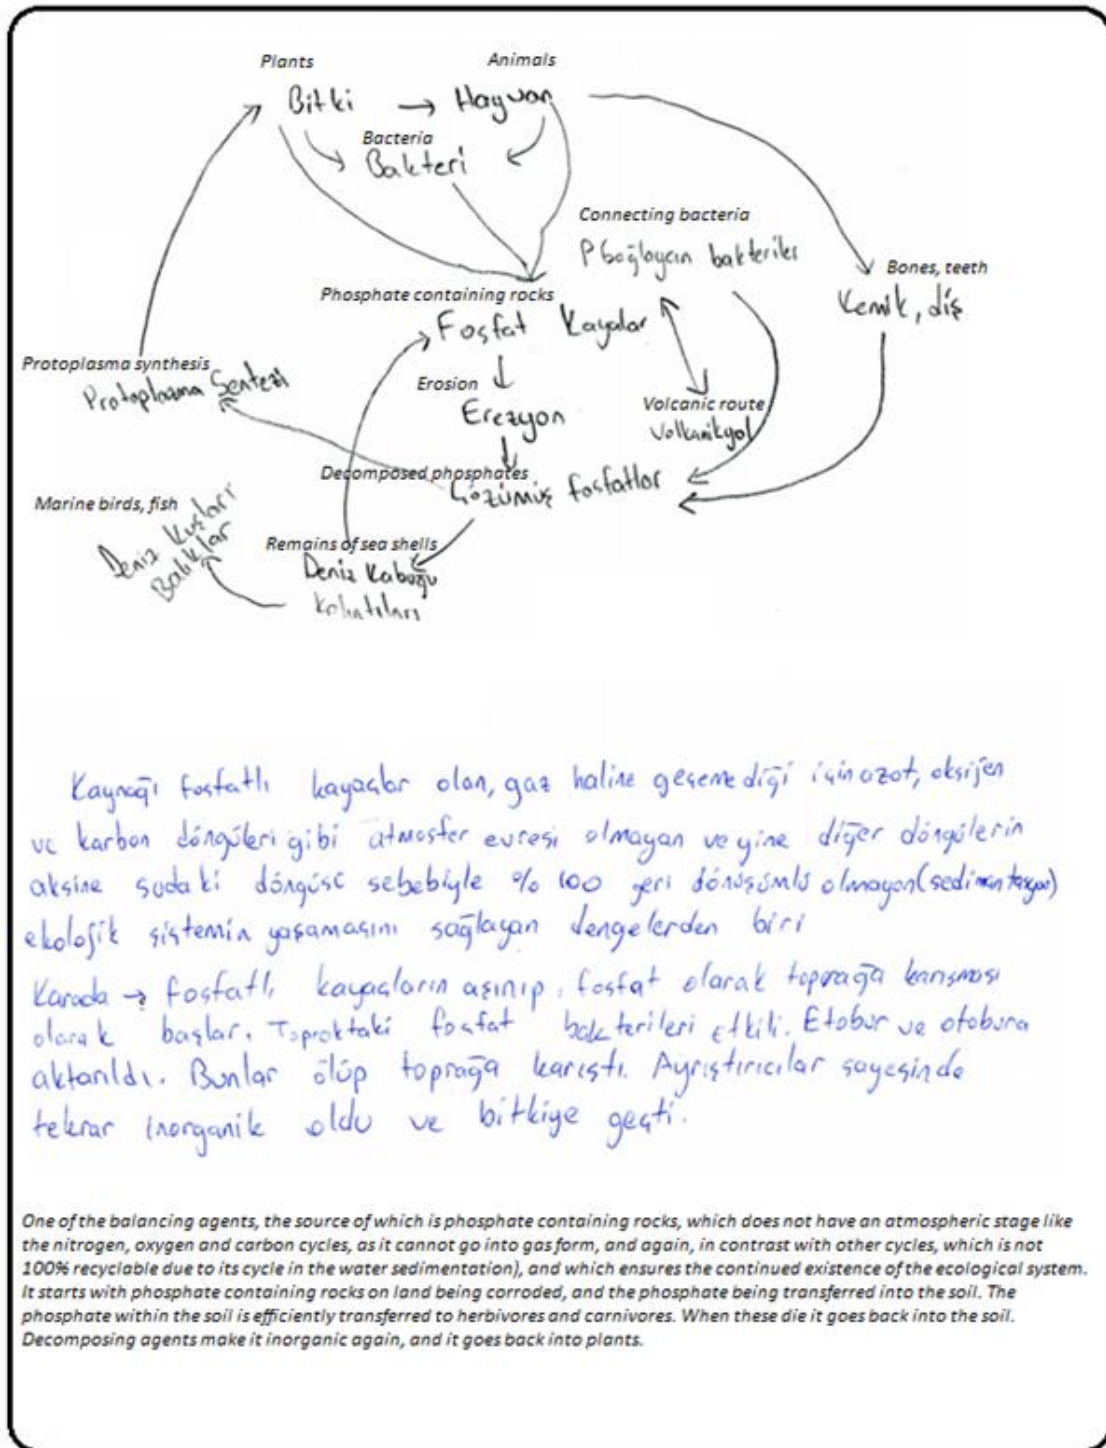 Plants
Animals
Bitki → Hayvan
Bacteria
Bakteri
Connecting bacteria
P bağlayan bakteriler
Bones, teeth
Kemik, diş
Phosphate containing rocks
Fosfat Kayalar
Protoplasma synthesis
Protoplazma Sentezi
Erosion
Erezyon
Volcanic route
Volkanikyol
Decomposed phosphates
Çözümüş fosfatlar
Marine birds, fish
Deniz Kuşları
Balıklar
Remains of sea shells
Deniz Kabuğu
Kalıntıları
Kaynağı fosfatlı kayaçlar olan, gaz haline geçemediği için azot, oksijen
ve karbon döngüleri gibi atmosfer evresi olmayan ve yine diğer döngülerin
aksine sudaki döngüsü sebebiyle % 100 geri dönüşümlü olmayan (sedimantasyon)
ekolojik sistemin yaşamasını sağlayan dengelerden biri
Karada → fosfatlı kayaçların aşınıp, fosfat olarak toprağa karışması
olarak başlar. Topraktaki fosfat bakterileri etkili. Etobur ve otobura
aktarıldı. Bunlar ölüp toprağa karıştı. Ayrıştırıcılar sayesinde
tekrar inorganik oldu ve bitkiye geçti.
One of the balancing agents, the source of which is phosphate containing rocks, which does not have an atmospheric stage like
the nitrogen, oxygen and carbon cycles, as it cannot go into gas form, and again, in contrast with other cycles, which is not
100% recyclable due to its cycle in the water sedimentation), and which ensures the continued existence of the ecological system.
It starts with phosphate containing rocks on land being corroded, and the phosphate being transferred into the soil. The
phosphate within the soil is efficiently transferred to herbivores and carnivores. When these die it goes back into the soil.
Decomposing agents make it inorganic again, and it goes back into plants.